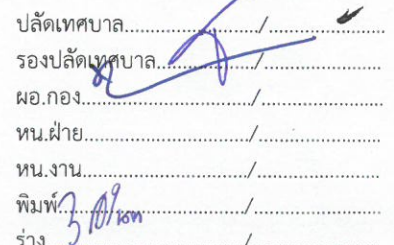 ปลัดเทศบาล............................/............................
รองปลัดเทศบาล....................../............................
ผอ.กอง................................../............................
หน.ฝ่าย................................../............................
หน.งาน................................../............................
พิมพ์....................................../............................
ร่าง........................................./............................